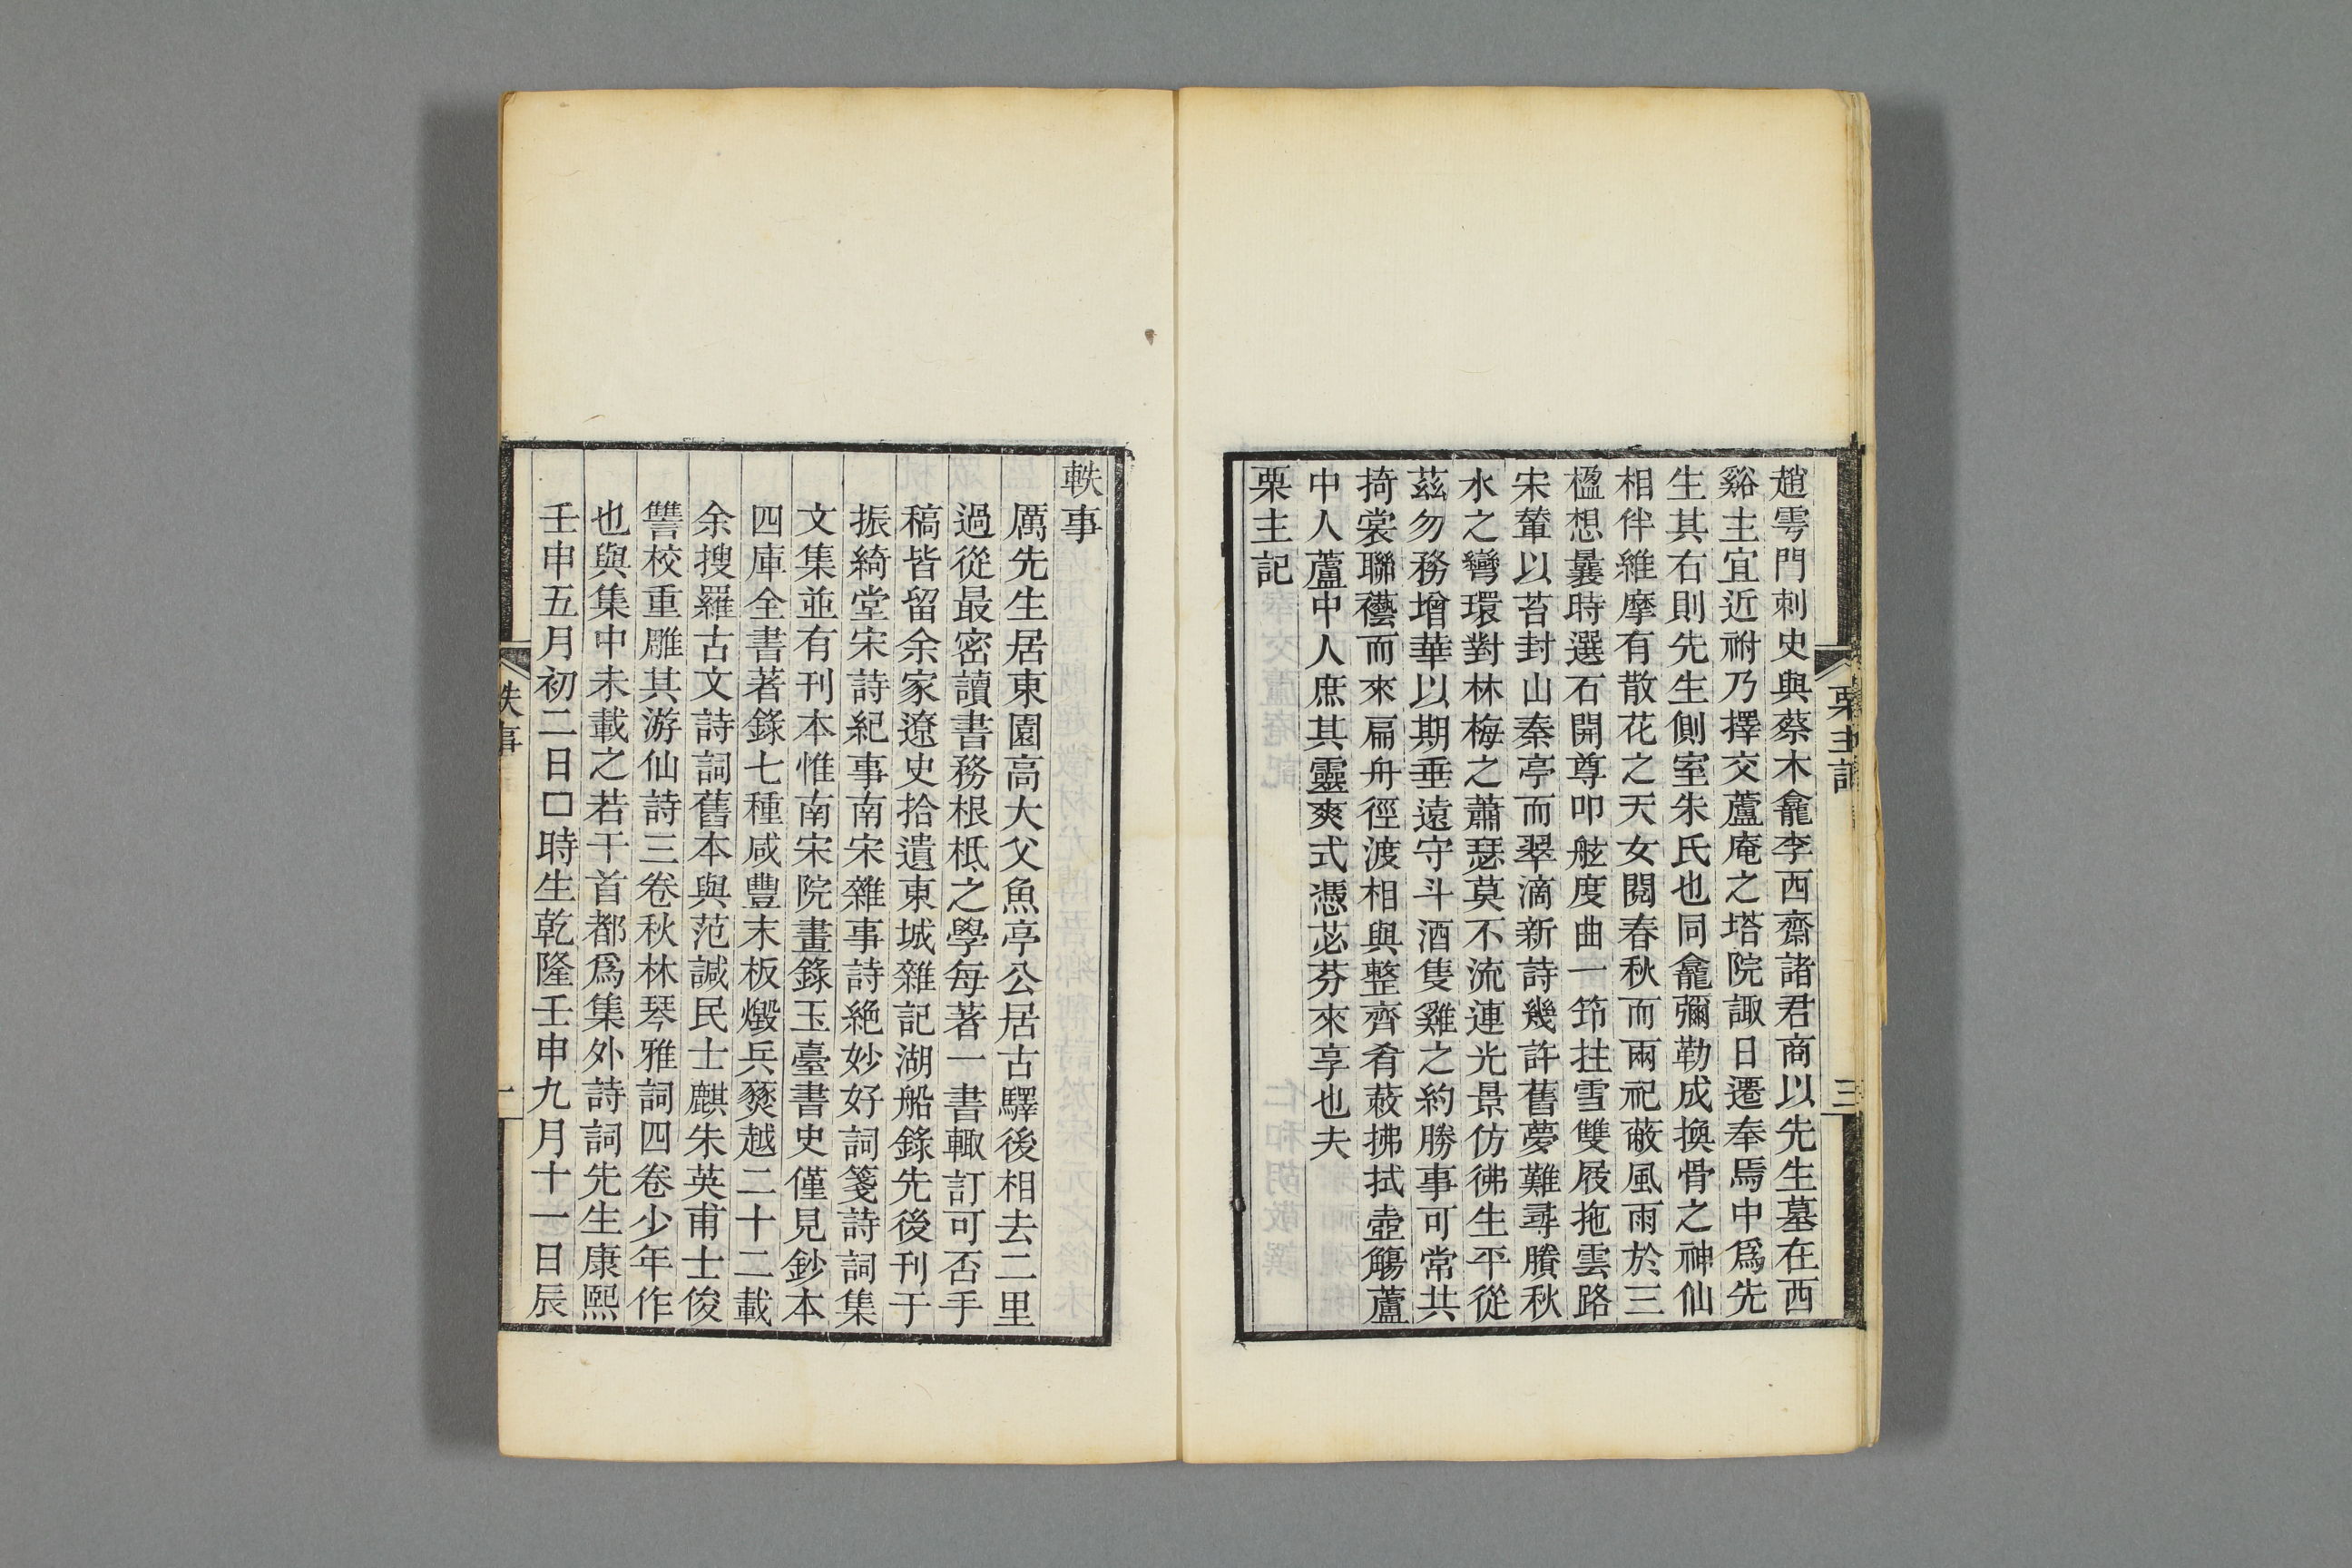 栗主記
三
趙雩門刺史與蔡木龕李西齋諸君商以先生墓在西
谿主宜近祔乃擇交蘆庵之塔院諏日遷奉焉中爲先
生其右則先生側室朱氏也同龕彌勒成換骨之神仙
相伴維摩有散花之天女閱春秋而兩祀蔽風雨於三
楹想曩時選石開尊叩舷度曲一笻拄雪雙屐拖雲路
宋輦以苔封山秦亭而翠滴新詩幾許舊夢難尋賸秋
水之彎環對林梅之蕭瑟莫不流連光景仿彿生平從
茲勿務增華以期垂遠守斗酒隻雞之約勝事可常共
掎裳聯襼而來扁舟徑渡相與整齊肴蔌拂拭壺觴蘆
中人蘆中人庶其靈爽式憑苾芬來享也夫
栗主記
軼事
厲先生居東園高大父魚亭公居古驛後相去二里
過從最密讀書務根柢之學每著一書輙訂可否手
稿皆留余家遼史拾遺東城雜記湖船錄先後刊于
振綺堂宋詩紀事南宋雜事詩絶妙好詞箋詩詞集
文集並有刊本惟南宋院畫錄玉臺書史僅見鈔本
四庫全書著錄七種咸豐末板燬兵燹越二十二載
余搜羅古文詩詞舊本與范諴民士麒朱英甫士俊
讐校重雕其游仙詩三卷秋林琴雅詞四卷少年作
也與集中未載之若干首都爲集外詩詞先生康熙
壬申五月初二日□時生乾隆壬申九月十一日辰
軼事
一